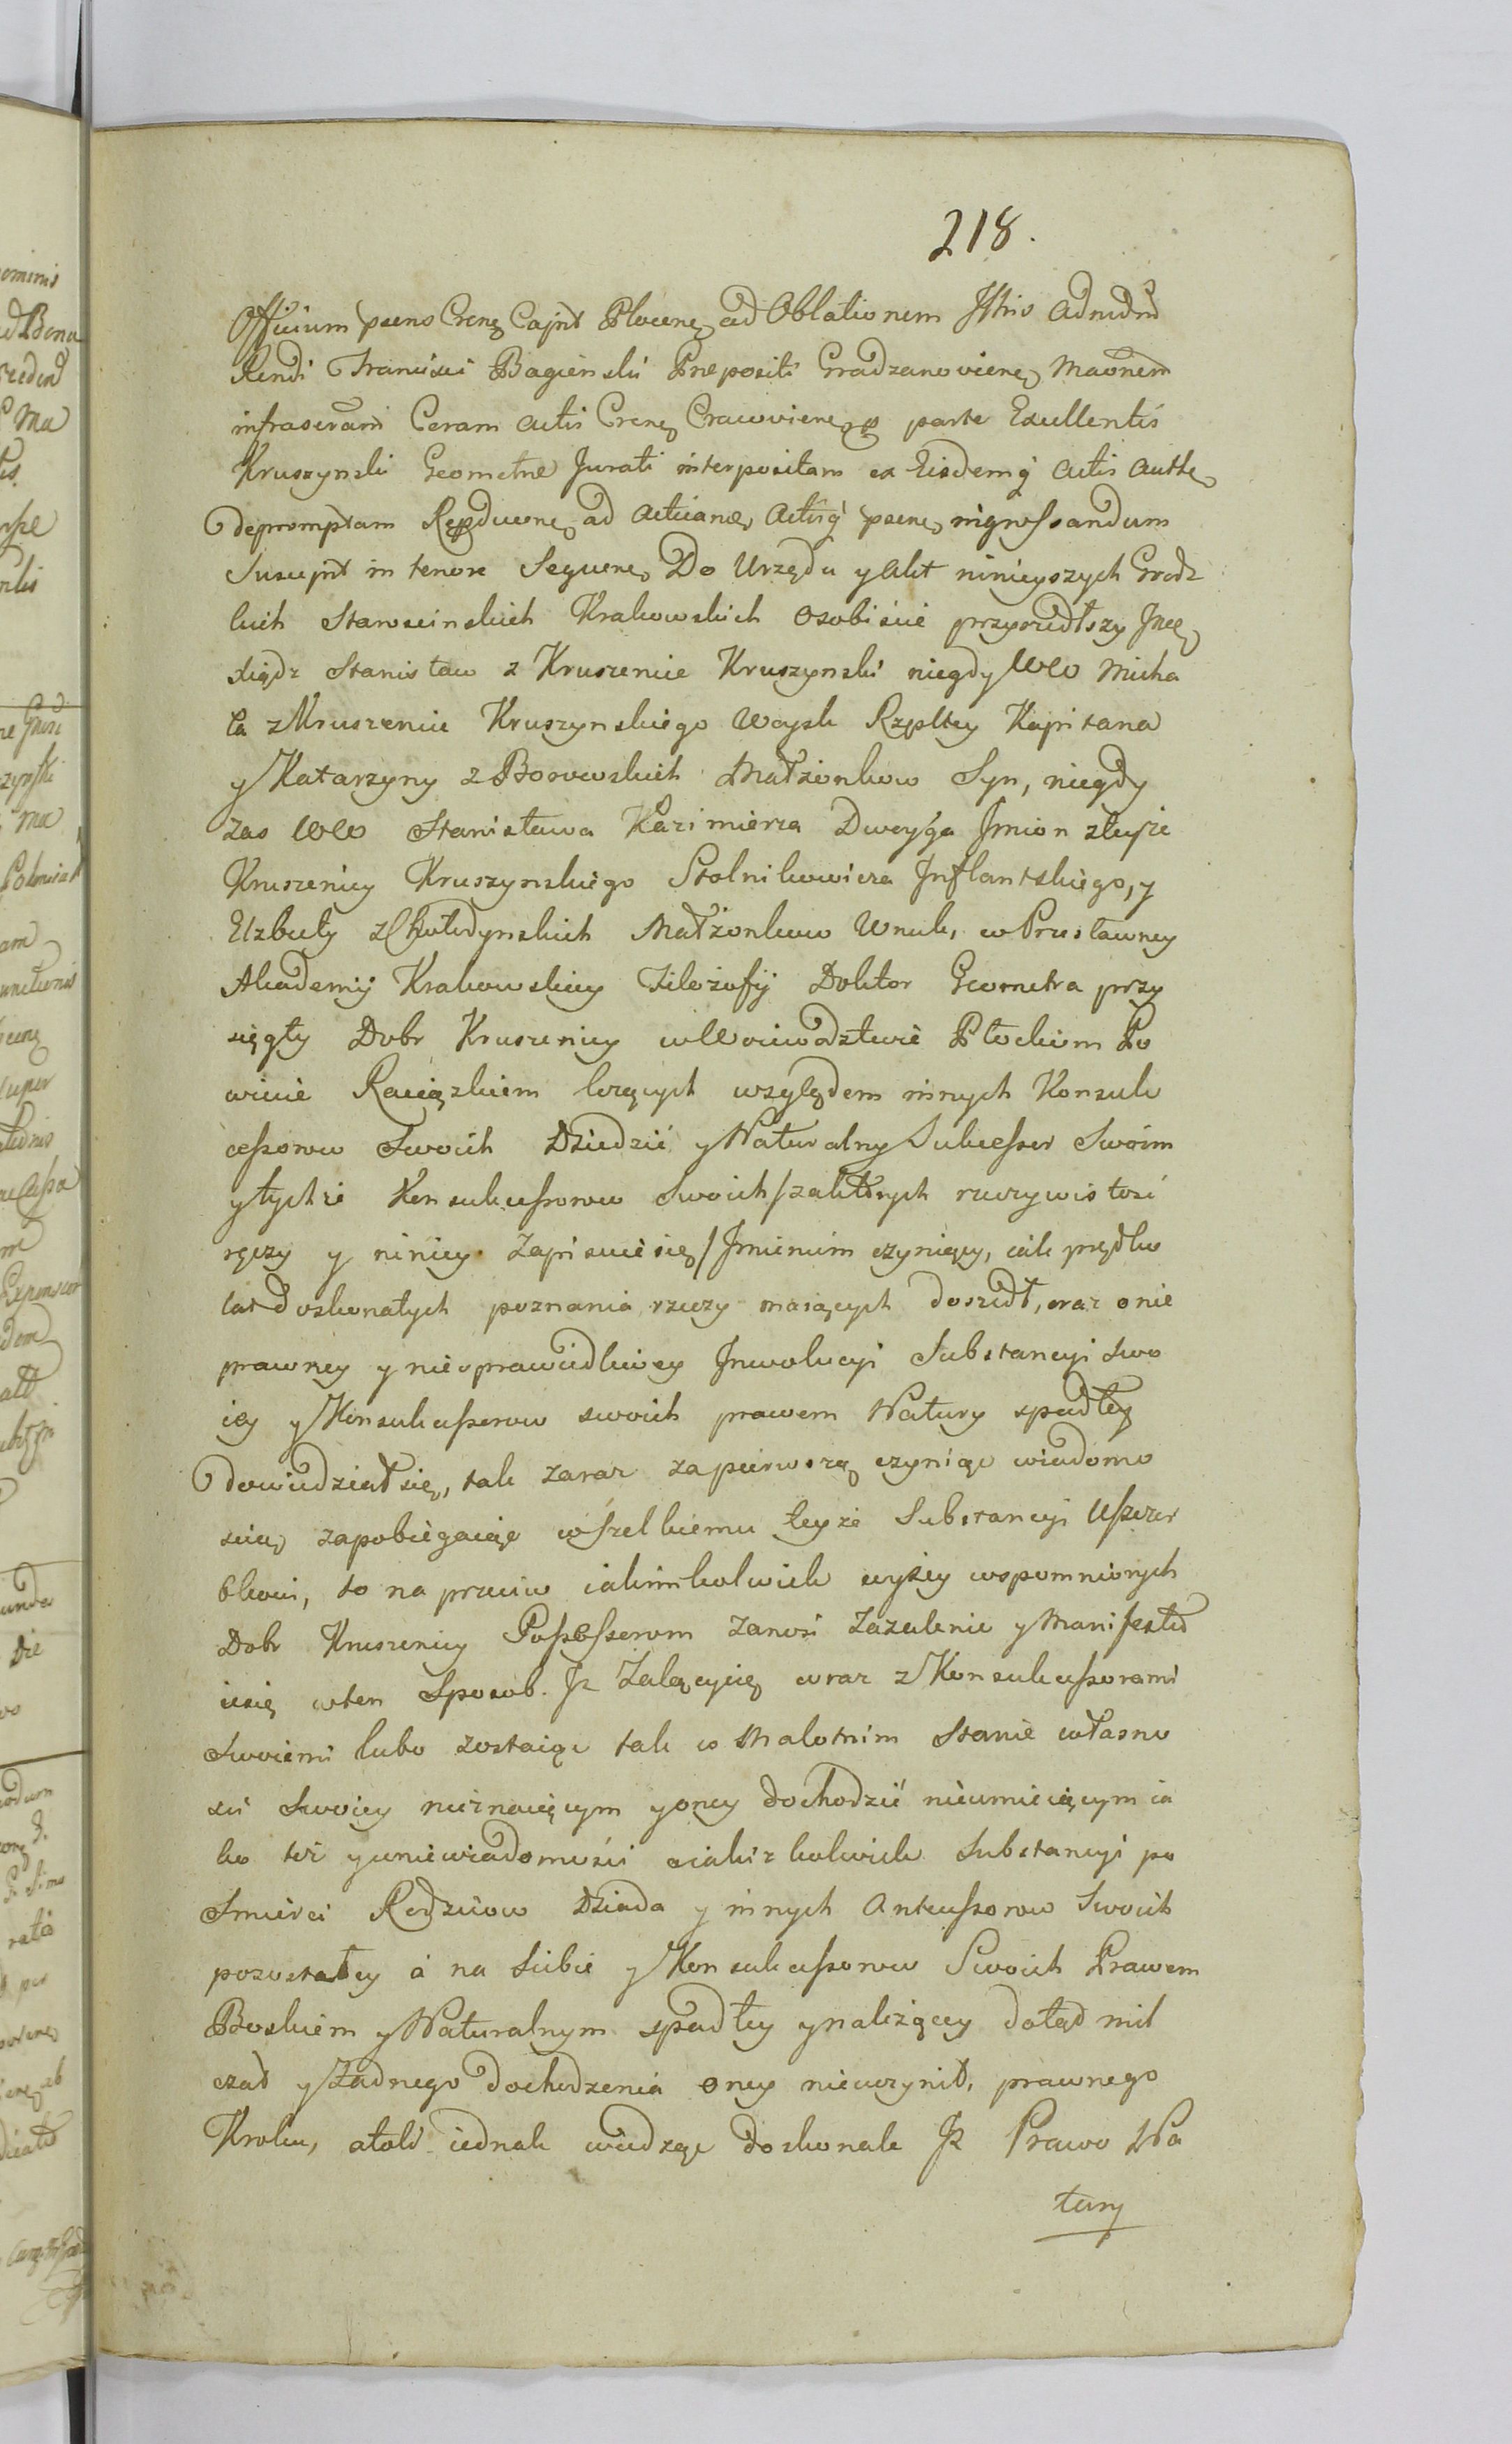 218.
Officium psens Crene Capnt Plocene ad Oblationem Ittris Admdm
Rendi Francisci Bagienski Prepositi Gradzanoviene Maonem
infrascram Coram actis Crene Cracoviene parte Excellentis
Kruszynski Geometræ Jurati interpositam ex Eisdemq actis authe
depromptam ad acticane Actisq psene ingrossandum
Suscepit in tenore Sequene Do Urzędu y Akt ninieyszych Grodz
kich Staroscinskich Krakowskich osobiscie przyszedłszy Jmć
Xiądz Stanisław z Kruszenice Kruszynski niegdy WW Micha
ła z Kruszenice Kruszynskiego Woysk Rzpltey Kapitana
y Katarzyny z Borowskich Małżonkow Syn, niegdy
zas WW Stanisława Kazimierza Dwoyga Jmion zteyże
Kruszenicy Kruszynskiego Stolnikowicza Inflantskiego, y
Elzbiety z Małżonkow Wnuk, w Prusławney
Akademij Krakowskiey Filozofij Doktor Geometra przy
sięgły Dobr Kruszenicy w Woiewodztwie Płockim Po
wiecie Raciązkiem lezących względem innych Konsuk
cessorow Swoich Dziedzic y Naturalny Sukcessor Swoim
y tychże Konsukcessorow Swoich /za których rzeczywistosć
ręczy y niniey Zapisuie się/ Jmieniem czyniący, iak prędko
lat doskonałych poznania rzeczy maiących doszedł, oraz o nie
prawney y niesprawiedliwey Inwolucyi Substancyi swo
iey y Konsukcessorow swoich prawem Natury spadłey
dowiedział się, tak zaraz zapierwszą czyniąc wiadomo
scią zapobiegaiąc wszelkiemu teyże Substancyi Uszczer
bkowi, to na przeciw iakimkolwiek wyżey wspomnionych
Dobr Kruszenicy Possessorom zanosi Zazalenie y Manifestu
ie się w ten Sposob. Iż Zalący się wraz z Konsukcessorami
Swoiemi lubo zostaiąc tak w Małotnim Stanie własno
sci Swoiey nieznaiącym y oney dochodzić nieumieiącym ia
ko też y w niewiadomości o iakież kolwiek Substancyi po
Smierci Rodzicow Dziada y innych Antecessorow Swoich
pozostałey a na Siebie y Konsukcessorow Swoich Prawem
Boskiem y Naturalnym spadłey y należącey dotąd mil
czał y Żadnego dochodzenia oney nieuczynił, prawnego
Kroku, atoli iednak wiedząc doskonale Iż Prawo Na
tury